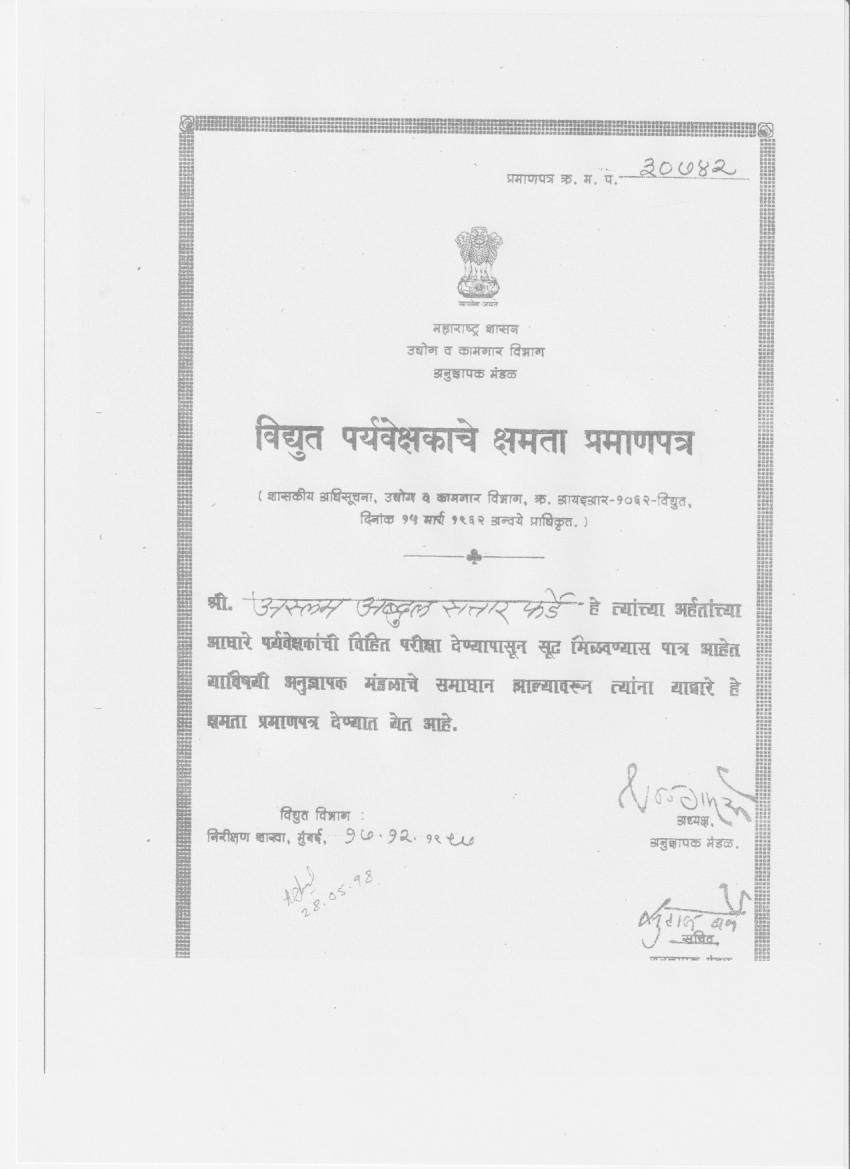 प्रमाणपत्र क्र. म. प. ३०७४२
सत्यमेव जयते
महाराष्ट्र शासन
उद्योग व कामगार विभाग
अनुज्ञापक मंडळ
विद्युत पर्यवेक्षकाचे क्षमता प्रमाणपत्र
( शासकीय अधिसूचना, उद्योग व कामगार विभाग, क्र. आयइआर-१०६२-विद्युत,
दिनांक १५ मार्च १९६२ अन्वये प्राधिकृत. )
श्री. अस्लम अब्दुल सत्तार फर्डे हे त्यांच्या अर्हतांच्या
आधारे पर्यवेक्षकांची विहित परीक्षा देण्यापासून सूट मिळवण्यास पात्र आहेत
याविषयी अनुज्ञापक मंडळाचे समाधान झाल्यावरून त्यांना याद्वारे हे
क्षमता प्रमाणपत्र देण्यात येत आहे.
विद्युत विभाग :
निरीक्षण शाखा, मुंबई, १७.१२.१९९७
28.05.98.
अध्यक्ष,
अनुज्ञापक मंडळ.
सचिव,